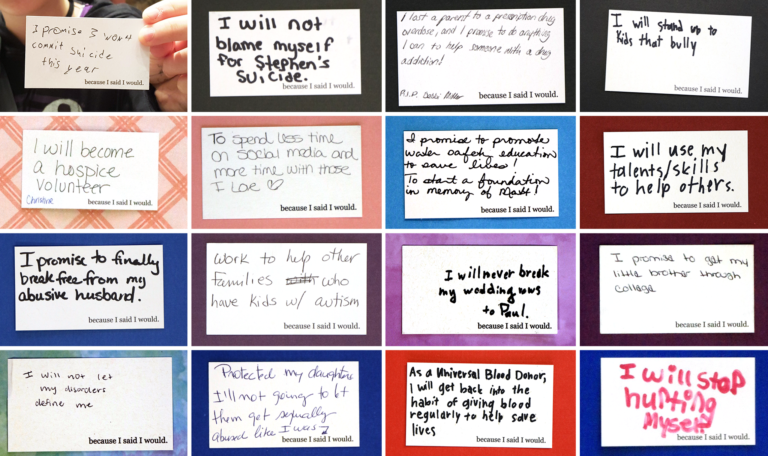 I promise I won't
commit Suicide
this year
because I said I would.
I will not
blame myself
for Stephen's
Suicide.
because I said I would.
I lost a parent to a prescription drug
overdose, and I promise to do anything
I can to help someone with a drug
addiction!
R.I.P. Debbi
because I said I would.
I will stand up to
kids that bully
because I said I would.
I will become
a hospice
volunteer
Christine
because I said I would.
To spend less time
on social media and
more time with those
I Love ♡
because I said I would.
I promise to promote
water safety education
to save lives!
To start a foundation
in memory of Matt!
because I said I would.
I will use my
talents/skills
to help others.
because I said I would.
I promise to finally
break free from my
abusive husband.
because I said I would.
Work to help other
families with who
have kids w/ autism
because I said I would.
I will never break
my wedding vows
to Paul.
because I said I would.
I promise to get my
little brother through
college
because I said I would.
I will not let
my disorders
define me
because I said I would.
Protected my daughters
I'll not going to let
them get sexually
abused like I was
because I said I would.
As a Universal Blood Donor,
I will get back into the
habit of giving blood
regularly to help save
lives
because I said I would.
I will stop
hurting
Myself
because I said I would.